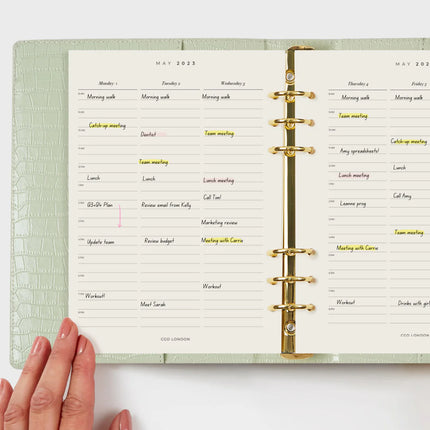 MAY 2023
Monday 1
Morning walk
Catch-up meeting
Lunch
Q3+Q4 Plan
Update team
Workout!
Tuesday 2
Morning walk
Dentist
Team meeting
Lunch
Review email from Kelly
Review budget
Meet Sarah
Wednesday 3
Morning walk
Team meeting
Lunch meeting
Call Tom!
Marketing review
Meeting with Carrie
Workout
CGD LONDON
MAY 202
Thursday 4
Morning walk
Team meeting
Amy spreadsheets!
Lunch meeting
Leanne prog
Meeting with Carrie
Workout
Friday 5
Morning walk
Catch-up meeting
Lunch
Call Amy
Team meeting
Drinks with girl
CGD LONDON